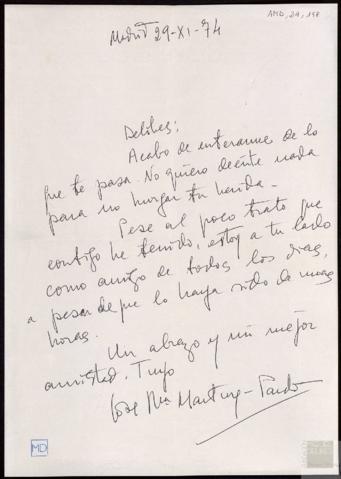 AMD, 29, 198
Madrid 29-XI-74
Delibes:
Acabo de enterarme de lo
que te pasa. No quiero decirte nada
para no hurgar tu herida.
Pese al poco trato que
contigo he tenido, estoy a tu lado
como amigo de todos los días,
a pesar de que lo haya sido de unas
horas.
Un abrazo y mi mejor
amistad. Tuyo
José Mª Martínez-Pardo
MD